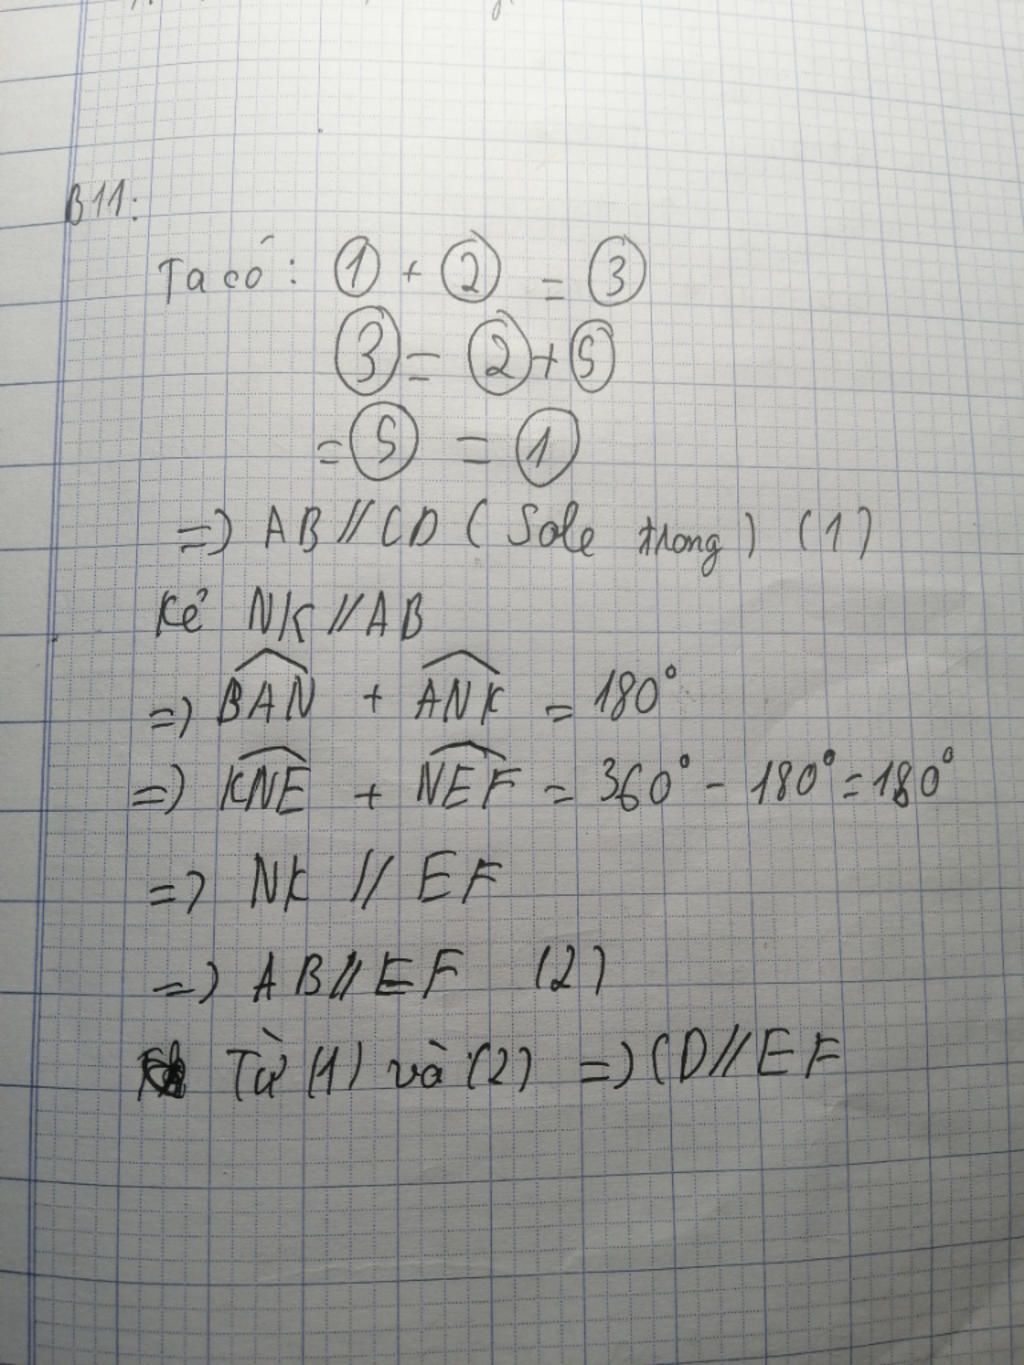 B11:
Ta có: ① + ② = ③
③ = ② + ⑤
= ⑤ = ①
=) AB // CD ( Sole trong ) (1)
Kẻ NK // AB
=) \widehat{BAN} + \widehat{ANK} = 180°
=) \widehat{KNE} + \widehat{NEF} = 360° - 180° = 180°
=) NK // EF
=) AB // EF (2)
Từ (1) và (2) =) CD // EF